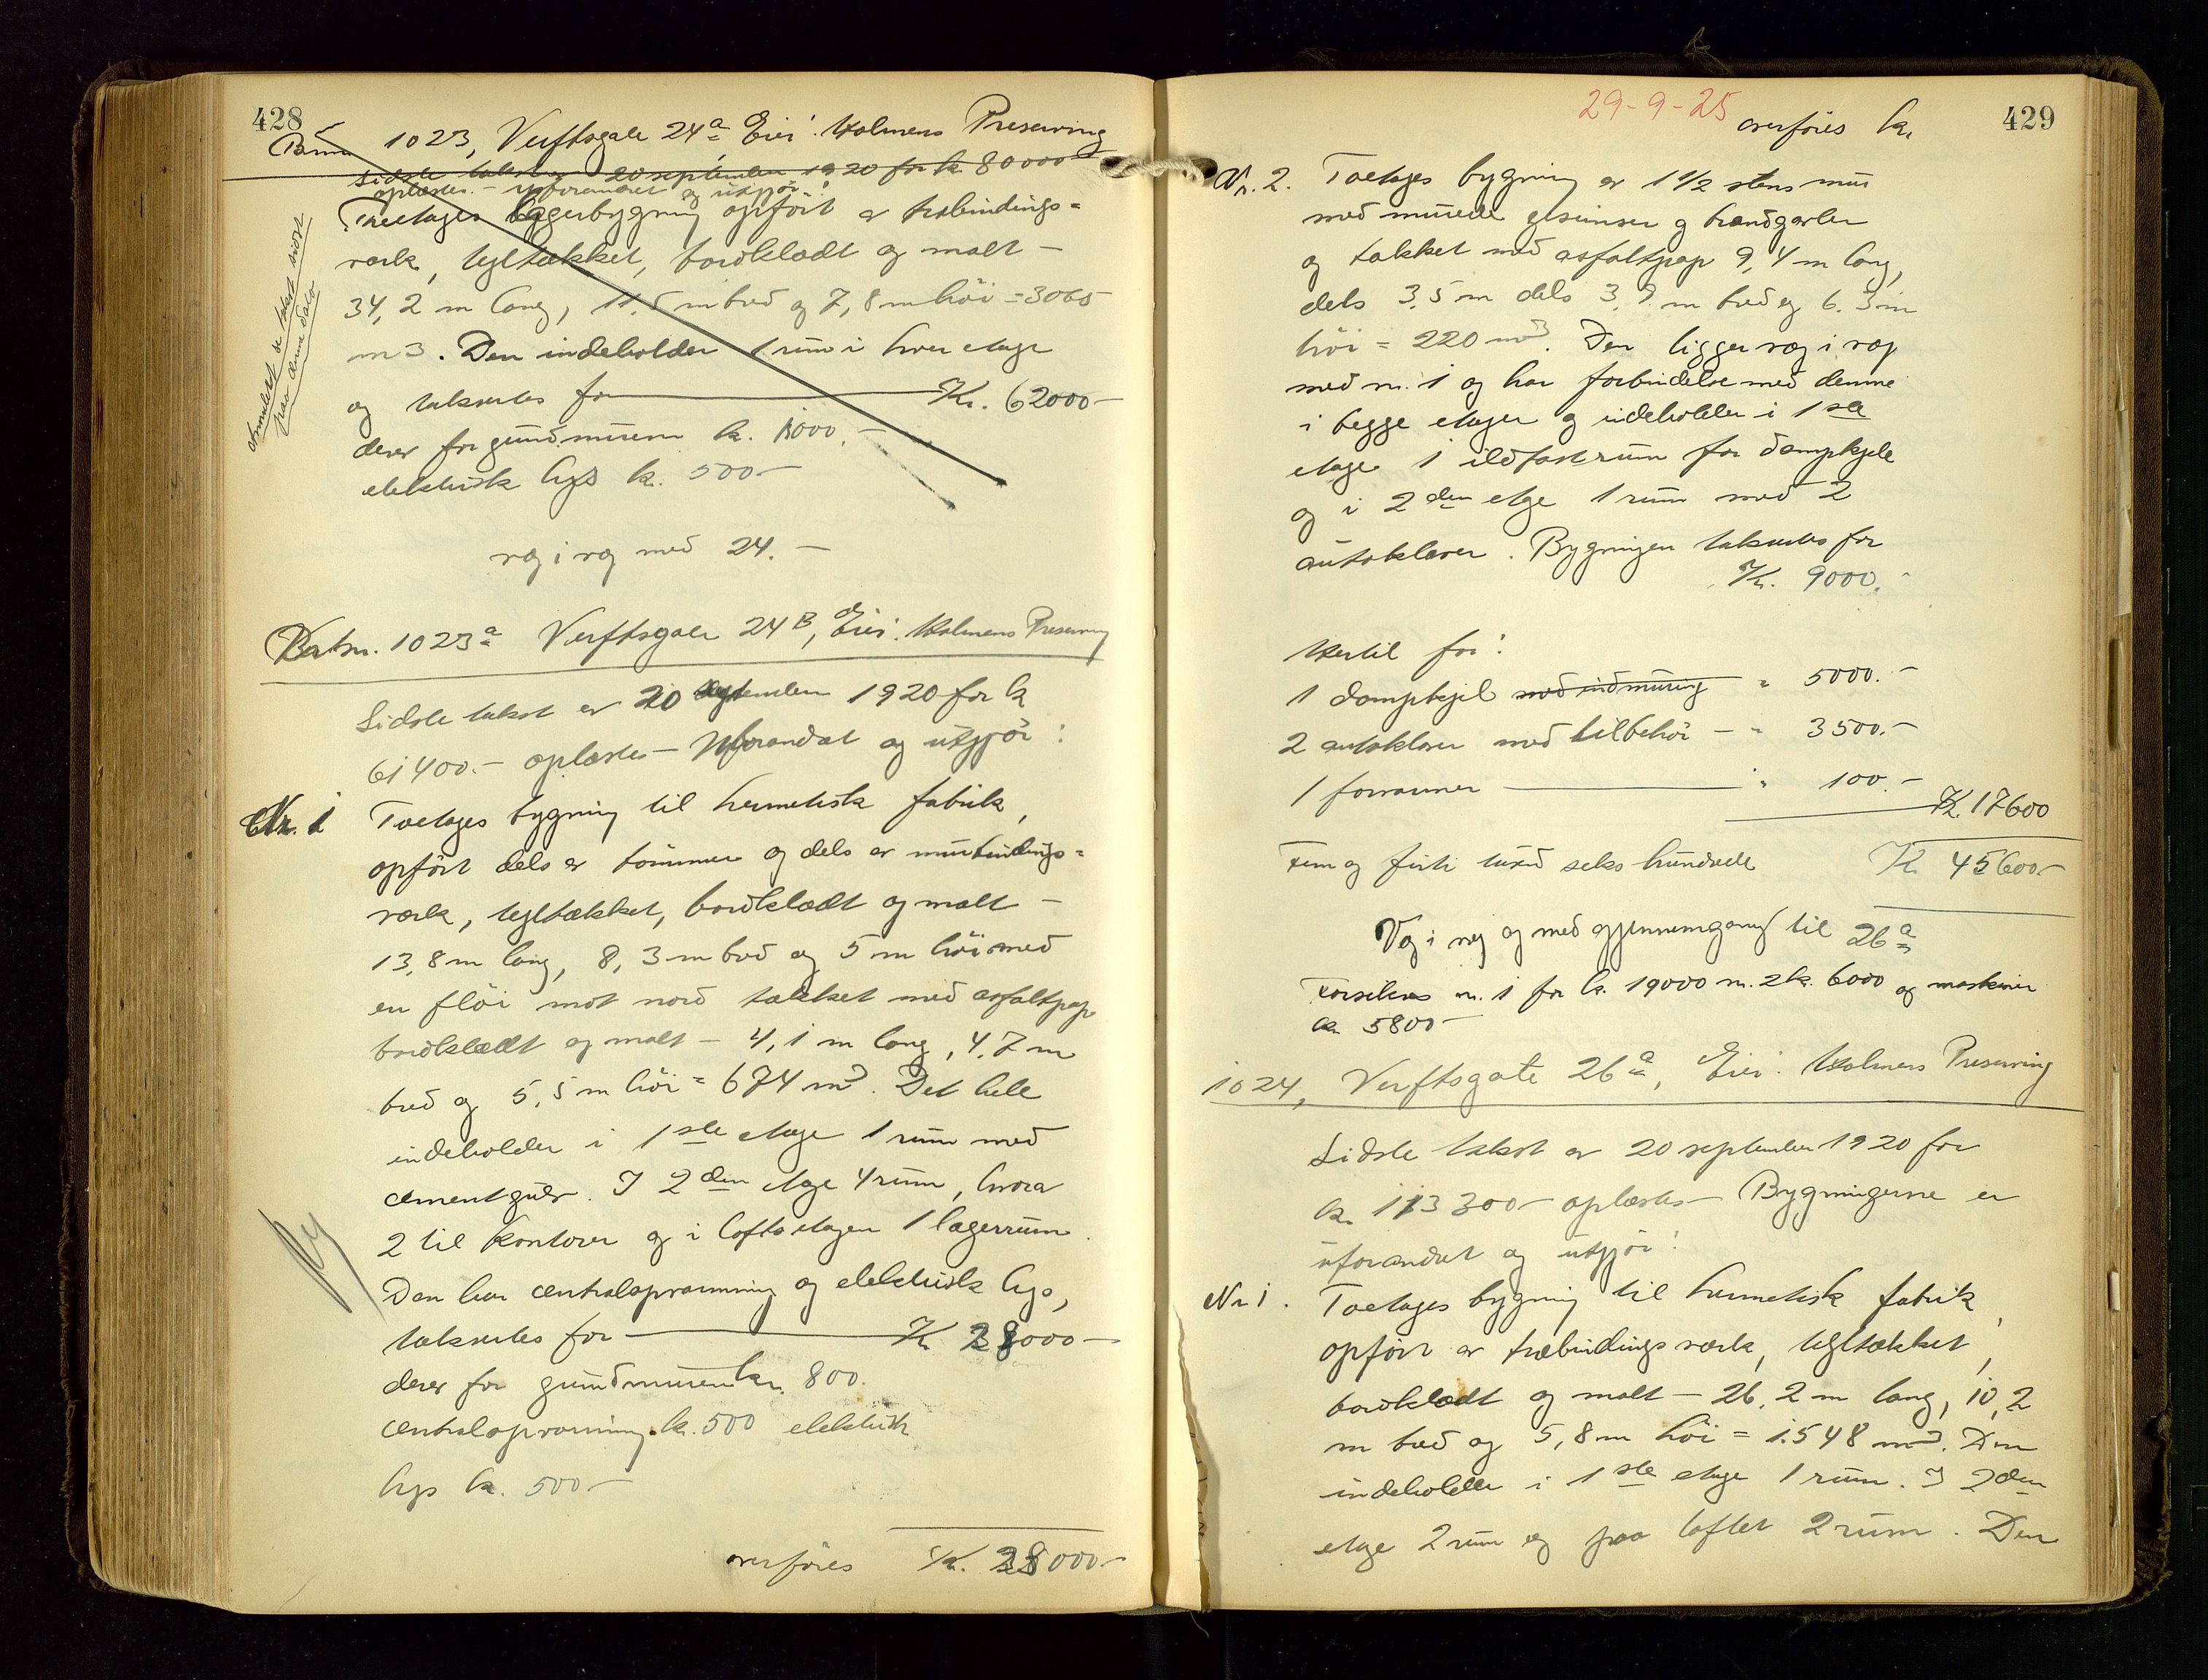 428
1023, Verftsgate 24a Eier: Holmens Preserving
Sidste takst er 20 september 1920 for kr 80000
oplæstes. - uforandret og utgjör:
Treetages lagerbygning opfört av træbindings=
værk, tegltækket, bordklædt og malt -
34,2 m lang, 11,5 m bred og 7,8 m höi = 3065
m3. Den indeholder 1 rum i hver etage
og takseres for Kr. 62000-
derav for grundmuren kr. 1000.-
elektrisk lys kr. 500.-
Annulleret se takst sidst
paa denne dato
væg i væg med 24. -
Bertnr. 1023a Verftsgate 24B, Eier: Holmens Preserving
Sidste takst er 20 september 1920 for kr
61400.- oplæstes - Uforandret og utgjör:
Nr. 1 Toetages bygning til hermetisk fabrik,
opfört dels av tömmer og dels av murbindings=
værk, tegltækket, bordklædt og malt -
13,8 m lang, 8,3 m bred og 5 m höi med
en flöi mot nord tækket med asfaltpap
bordklædt og malt - 4,1 m lang, 4,7 m
bred og 5,5 m höi = 674 m3. Det hele
indeholder i 1ste etage 1 rum med
cementgulv. I 2den etage 4 rum, hvorav
2 til kontorer og i loftsetagen 1 lagerrum.
Den har centralopvarmning og elektrisk lys,
takseres for Kr 28000-
derav for grundmuren kr. 800.
centralopvarmning kr. 500 elektrisk
lys kr. 500-
overföres Kr. 28000-
29-9-25 overföres kr. 429
Nr. 2. Toetages bygning av 1 1/2 stens mur
med murede gesimser og brandgavler
og tækket med asfaltpap 9,4 m lang,
dels 3,5 m dels 3,9 m bred og 6.3 m
höi = 220 m3. Den ligger væg i væg
med nr. 1 og har forbindelse med denne
i begge etager og indeholder i 1ste
etage 1 ildfast rum for dampkjele
og i 2den etage 1 rum med 2
autoklaver. Bygningen takseres for
Kr. 9000.-
Hertil for:
1 dampkjel med indmuring " 5000.-
2 autoklaver med tilbehör - " 3500.-
1 forvarmer " 100.-
Kr. 17600
Fem og firti tusind seks hundrede Kr 45600-
Væg i væg og med gjennemgang til 26a
Forsikres nr. 1 for kr. 19000 nr. 2 kr. 6000 og maskiner
kr. 5800-
1024, Verftsgate 26a, Eier: Holmens Preserving
Sidste takst er 20 september 1920 for
kr. 113300- oplæstes - Bygningerne er
uforandret og utgjör:
Nr 1. Toetages bygning til hermetisk fabrik,
opfört av træbindingsværk, tegltækket,
bordklædt og malt - 26,2 m lang, 10,2
m bred og 5,8 m höi = 1548 m3. Den
indeholder i 1ste etage 1 rum. I 2den
etage 2 rum og paa loftet 2 rum. Den